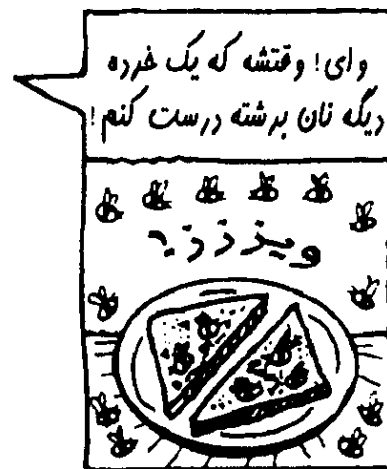 وای! وقتشه که یک خرده
دیگه نان برشته درست کنم!
ویززز